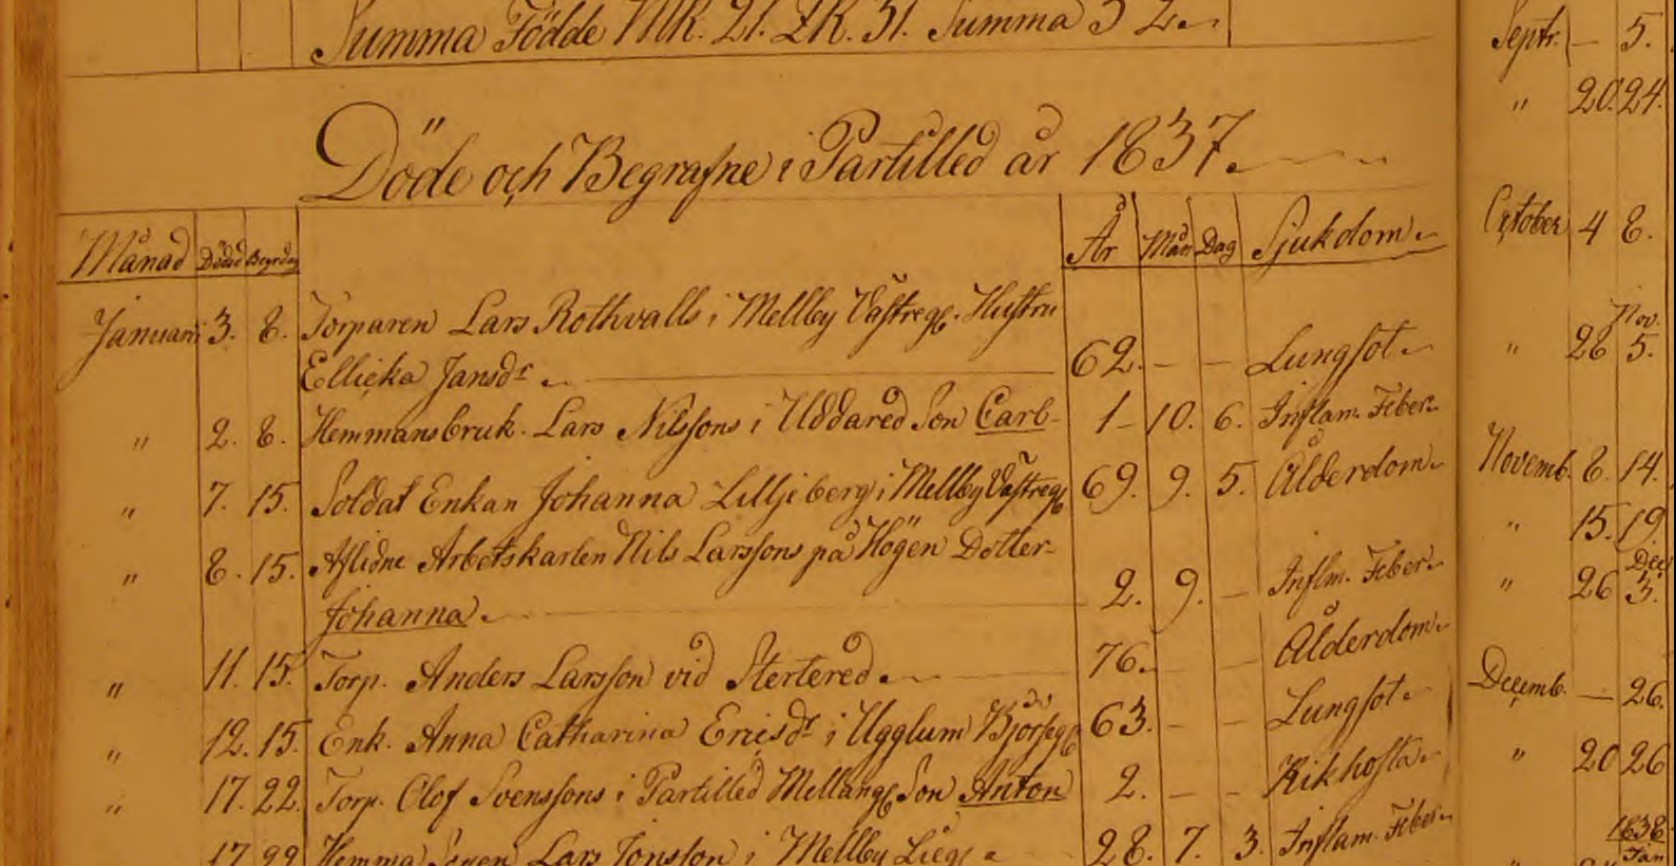 Summa Födde MK. 21. ZK. 31. Summa 5 2.
Döde och Begrafne i Partilled år 1837.
Månad Döds Begrdag År Mån Dag Sjukdom
Januari 3. 8. Torparen Lars Rothvalls i Mellby Västreg. Hustru
Ellicka Jansdr 62. — — Lungsot
" 2. 8. Hemmansbruk. Lars Nilssons i Uddared Son Carl 1 10. 6. Inflam. Feber
" 7. 15. Soldat Enkan Johanna Lilljeberg i Mellby Västreg 69. 9. 5. Ålderdom
" 8. 15. Aflidne Arbetskarlen Nils Larssons på Högen Dotter
Johanna 2. 9. — Inflm. Feber
" 11. 15. Torp. Anders Larsson vid Stertered 76. — — Ålderdom
" 12. 15. Enk. Anna Catharina Ericsdr i Ugglum 63. — — Lungsot
" 17. 22. Torp. Olof Svenssons i Partilled Mellang Son Anton 2. — — Kikhosta
17 22 Lars Jonsson i Mellby 28. 7. 3. Inflam. Feber
Septr. — 5.
" 20. 24.
October 4 8.
Nov.
" 28 5.
Novemb. 8. 14.
" 15. 19.
Dec
" 26 3.
Decemb. — 26.
" 20 26
1838
Jan